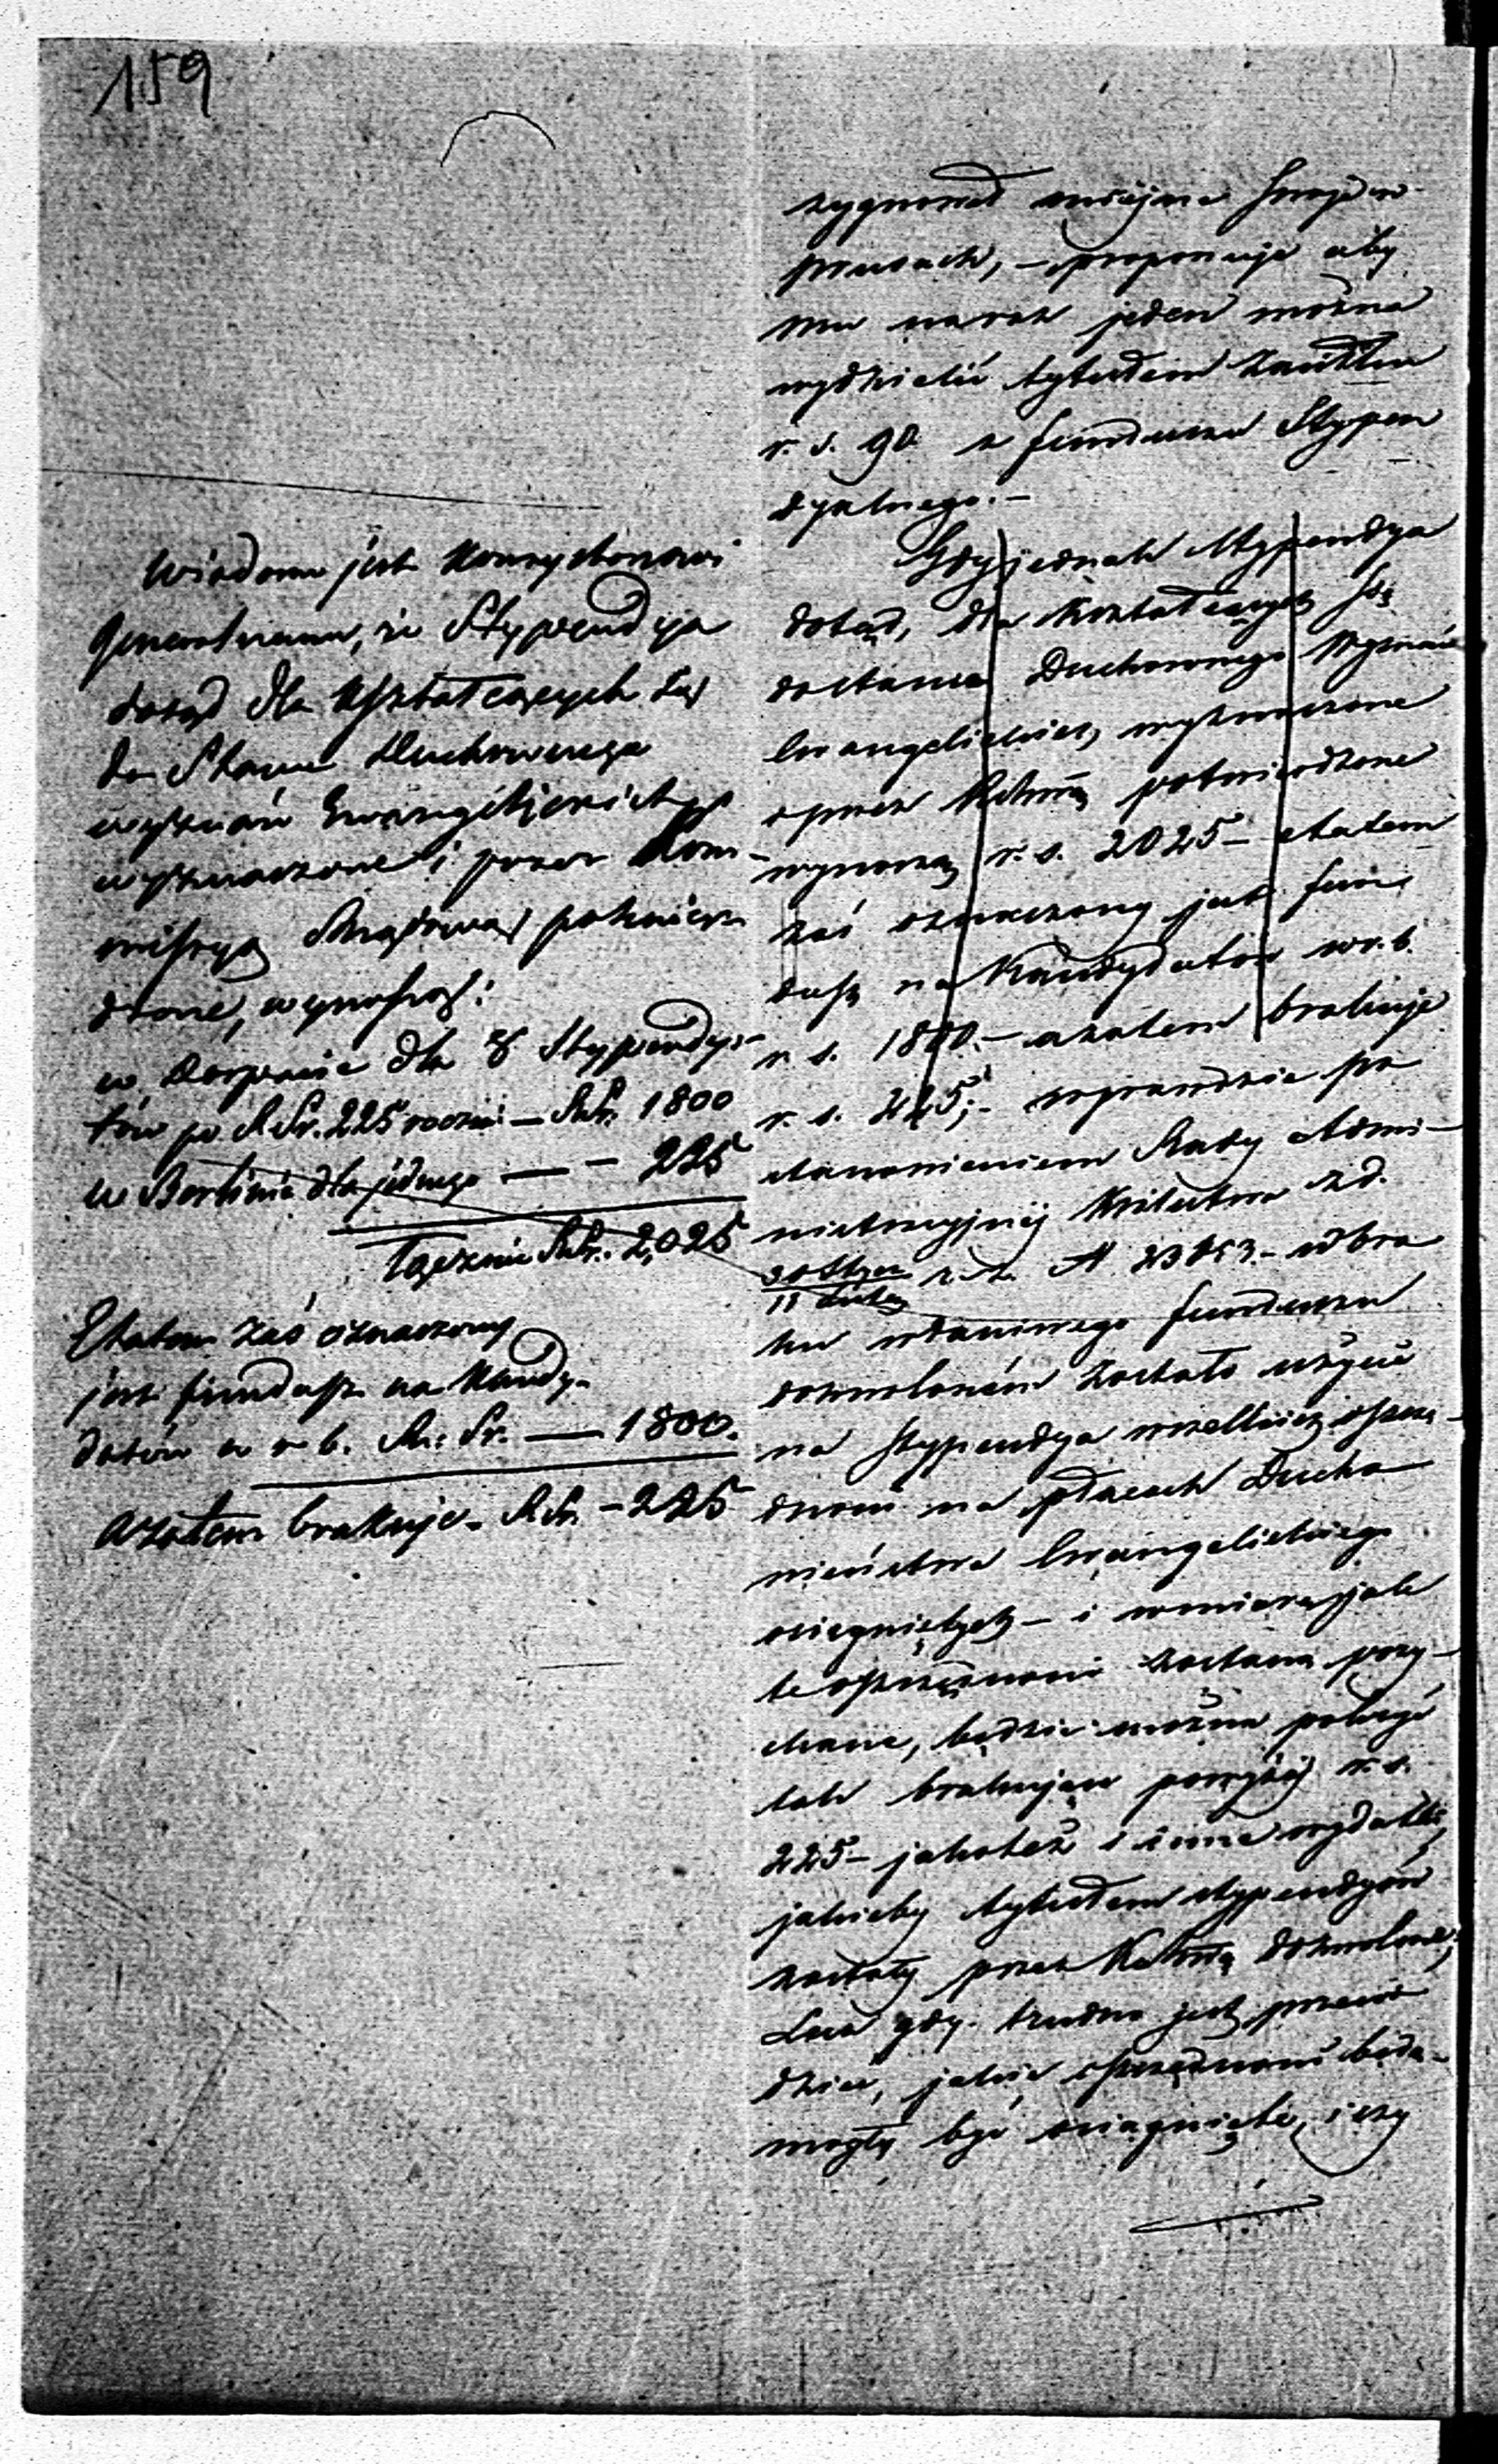 159
Wiadomo jest Konsystorzowi
Generalnemu, że Stypendyja
dotąd dla Kształcących się
do Stanu Duchownego
wyznań Ewangelickich
wyznaczone i przez Kom-
missyą Rządową potwier-
dzone, wynoszą:
w Dorpacie dla 8 Stypendys-
tów po R.Sr. 225 rocznie — R.Sr. 1800
w Berlinie dla jednego — — 225
Łącznie R.Sr. 2,025
Etatem zaś oznaczony
jest fundusz na Kandy-
datów w r. b. R. Sr. — 1800.
a zatem brakuje R.Sr. — 225
Prusach, — proponuje aby
mu na rok jeden można
wydzielić tytułem zasiłku
r. s. 90 z funduszu Stypen
dyalnego. —
Gdy jednak Stypendya
dotąd, dla Kształcących się
do stanu Duchownego Wyznań
Ewangelickich, wyznaczone
i przez potwierdzone
wynoszą r. s. 2025 — etatem
zaś oznaczony jest fun
dusz na Kandydatów w r. b.
r. s. 1800. — a zatem brakuje
r. s. 225; — wprawdzie po
stanowieniem Rady Admi-
nistracyjnej Królestwa z d.
30 Stycz
11 Luteg r. z. N 23853 — w bra
ku funduszu
dozwolonem zostało użycie
na Stypendya wszelkich oszczę-
dności na płacach Ducho
wieństwa Ewangelickiego
osiągniętych — i w miarę jak
te oszczędności zostaną pozy-
skane, będzie można pokryć
tak brakujące powyżej r. s.
225 — jakoteż i inne wydatki,
jakieby tytułem stypendyów
zostały przez dozwolone;
Lecz gdy trudno jest przewi
dzieć, jakie oszczędności będą
mogły być osiągnięte, i czy